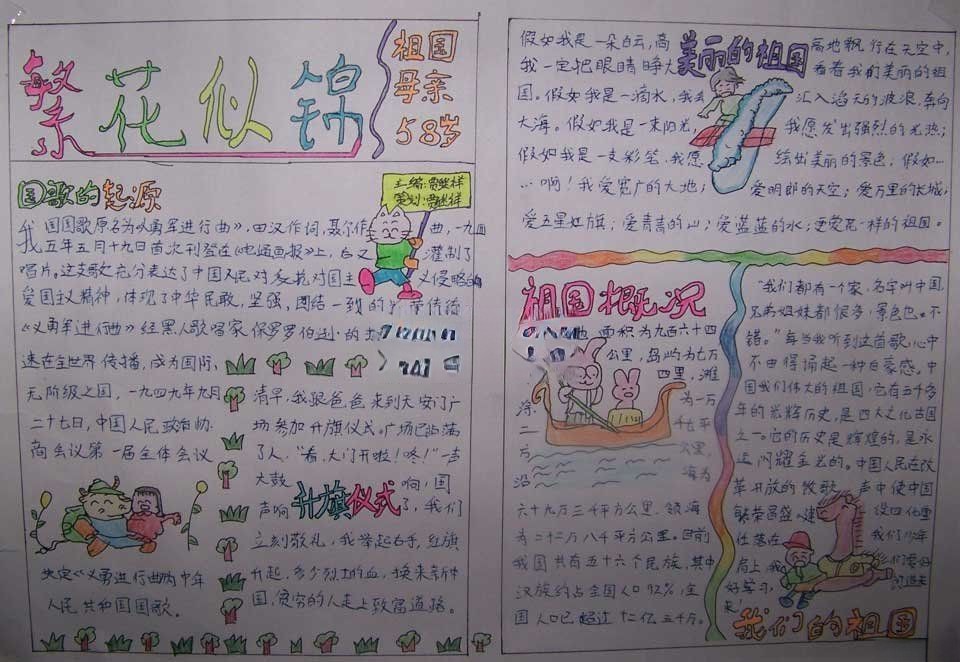 繁花似锦
祖国
母亲
58岁
国歌的起源
主编:
策划:
我国国歌原名为《义勇军进行曲》,田汉作词,聂尔作曲,一九三
五年五月十九日首次刊登在《电通画报》上,后又灌制了
唱片。这支歌充分表达了中国人民对
义侵略的
爱国主义精神,体现了中华民敢,坚强,团结一致的
传统
《义勇军进行曲》经黑人歌唱家保罗罗伯逊的
速在全世界传播,成为国际
无阶级之国,一九四九年九月
二十七日,中国人民政治协
商会议第一届全体会议
决定《义勇进行曲》为中华
人民共和国国歌。
升旗仪式
清早,我跟爸爸来到天安门广
场参加升旗仪式。广场已站满
了人,“看,大门开啦!咚!”一声
大鼓响,国
声响了,我们
立刻敬礼,我举起右手,红旗
升起,多少烈士的血,换来新中
国,贫穷的人走上致富道路。
美丽的祖国
假如我是一朵白云,高高地飘行在天空中,
我一定把眼睛睁大看看我们美丽的祖
国。假如我是一滴水,我汇入滔天的波浪,奔向
大海。假如我是一束阳光,我愿发出强烈的光热;
假如我是一支彩笔,我愿绘出美丽的景色;假如……
……啊!我爱宽广的大地;爱明郎的天空;爱万里的长城;
爱五星红旗;爱青青的山;爱蓝蓝的水;更爱花一样的祖国。
祖国概况
面积为九百六十四
公里,岛屿为七万
四里,滩
涂为一万
二千七平
万公里,
沿海为
六十九万三千平方公里。领海
为二十二万八千平方公里。目前
我国共有五十六个民族,其中
汉族约占全国人口92%,全
国人口已超过十二亿五千万。
“我们都有一个家,名字叫中国,
兄弟姐妹都很多,景色也不
错。”每当我听到这首歌,心中
不由得涌起一种自豪感。中
国我们伟大的祖国,它有五千多
年的光辉历史,是四大文化古国
之一。它的历史是辉煌的,是永
远闪耀金光的。中国人民在改
革开放的牧歌声中使中国
繁荣昌盛,建设四化重
任落在我们少年
肩上,我们要好
好学习,
来!
我们的祖国